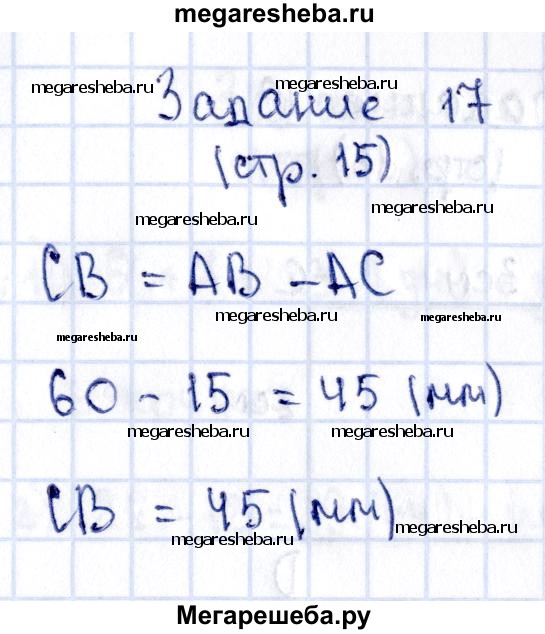 megaresheba.ru
megaresheba.ru
megaresheba.ru
Задание 17
(стр. 15)
megaresheba.ru
megaresheba.ru
CB = AB - AC
megaresheba.ru
megaresheba.ru
megaresheba.ru
60 - 15 = 45 (мм)
megaresheba.ru
megaresheba.ru
CB = 45 (мм)
megaresheba.ru
megaresheba.ru
Мегарешеба.ру